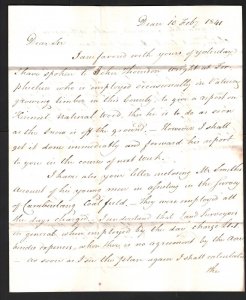 Deare 10 Feby 1841
Dear Sir
I am favored with yours of yesterday
I have spoken to John Thornton Wright at
who is employed occasionally in Valuing
growing timber in this County, to give a report on
Natural Wood, this he is to do as soon
as the Snow is off the ground. However I shall
get it done immediately and forward his report
to you in the course of next Week.
I have also your letter inclosing Mr Smith's
Account of his young men in assisting in the Survey
of Cumberlong Coal field, They were employed all
the days charged. I understand that Land Surveyors
in general, when employed by the day charge
expences, when there is no agreement by the
as soon as I see the plan again I shall
the